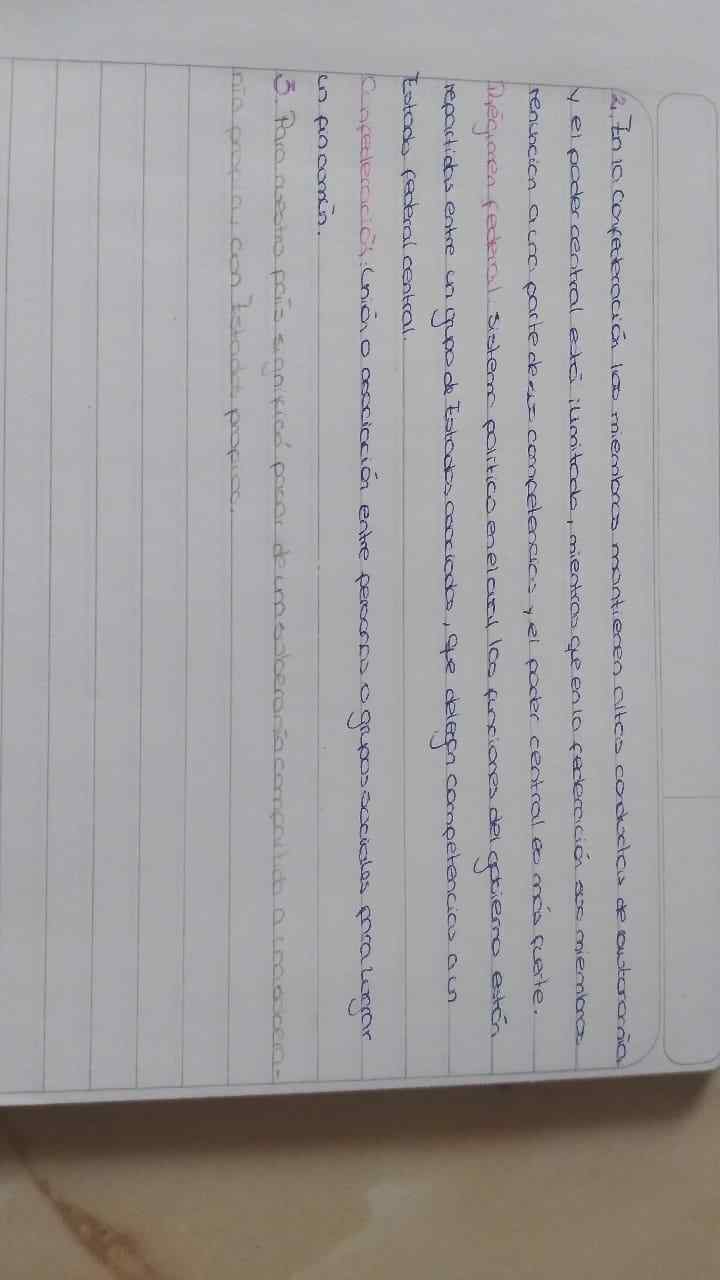 2. En la confederación los miembros mantienen altas conductas de autonomía
y el poder central está ilimitado, mientras que en la federación sus miembros
renuncian a una parte de sus competencias y el poder central es más fuerte.
Régimen federal: Sistema político en el cual las funciones del gobierno están
repartidas entre un grupo de Estados asociados, que delegan competencias a un
Estado federal central.
Confederación: Unión o asociación entre personas o grupos sociales para
un fin común.
3. Para nuestro país significó pasar de una soberanía compartida a una sobera-
nía con Estados propios.